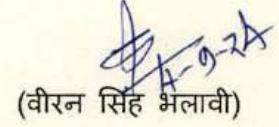 4-9-24
(वीरन सिंह भलावी)